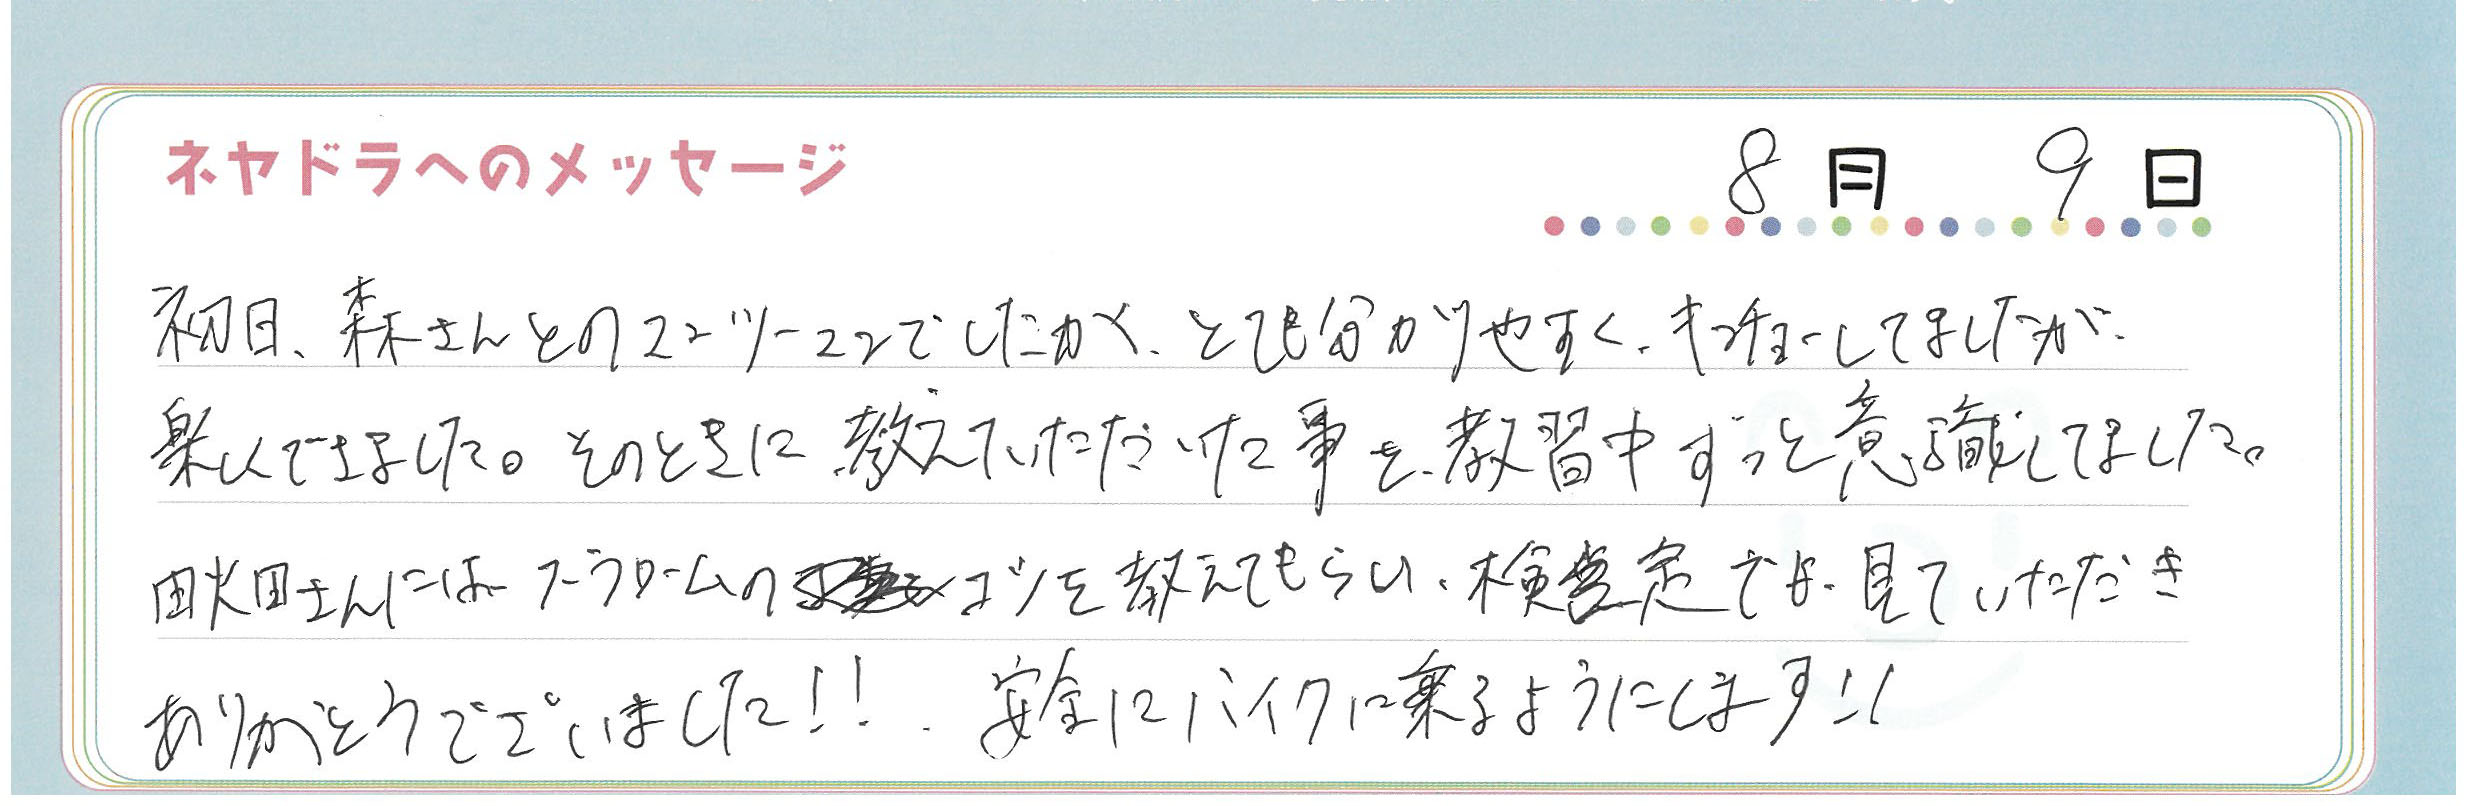 ネヤドラへのメッセージ
8月 9日
初日、森さんとのマンツーマンでしたが、とても分かりやすく、キンチョーしてましたが、
楽しくできました。そのときに、教えていただいた事を、教習中ずっと意識してました。
さんには、スラロームの コツを教えてもらい、検定でも、見ていただき
ありがとうございました!! 安全にバイクに乗るようにします!!